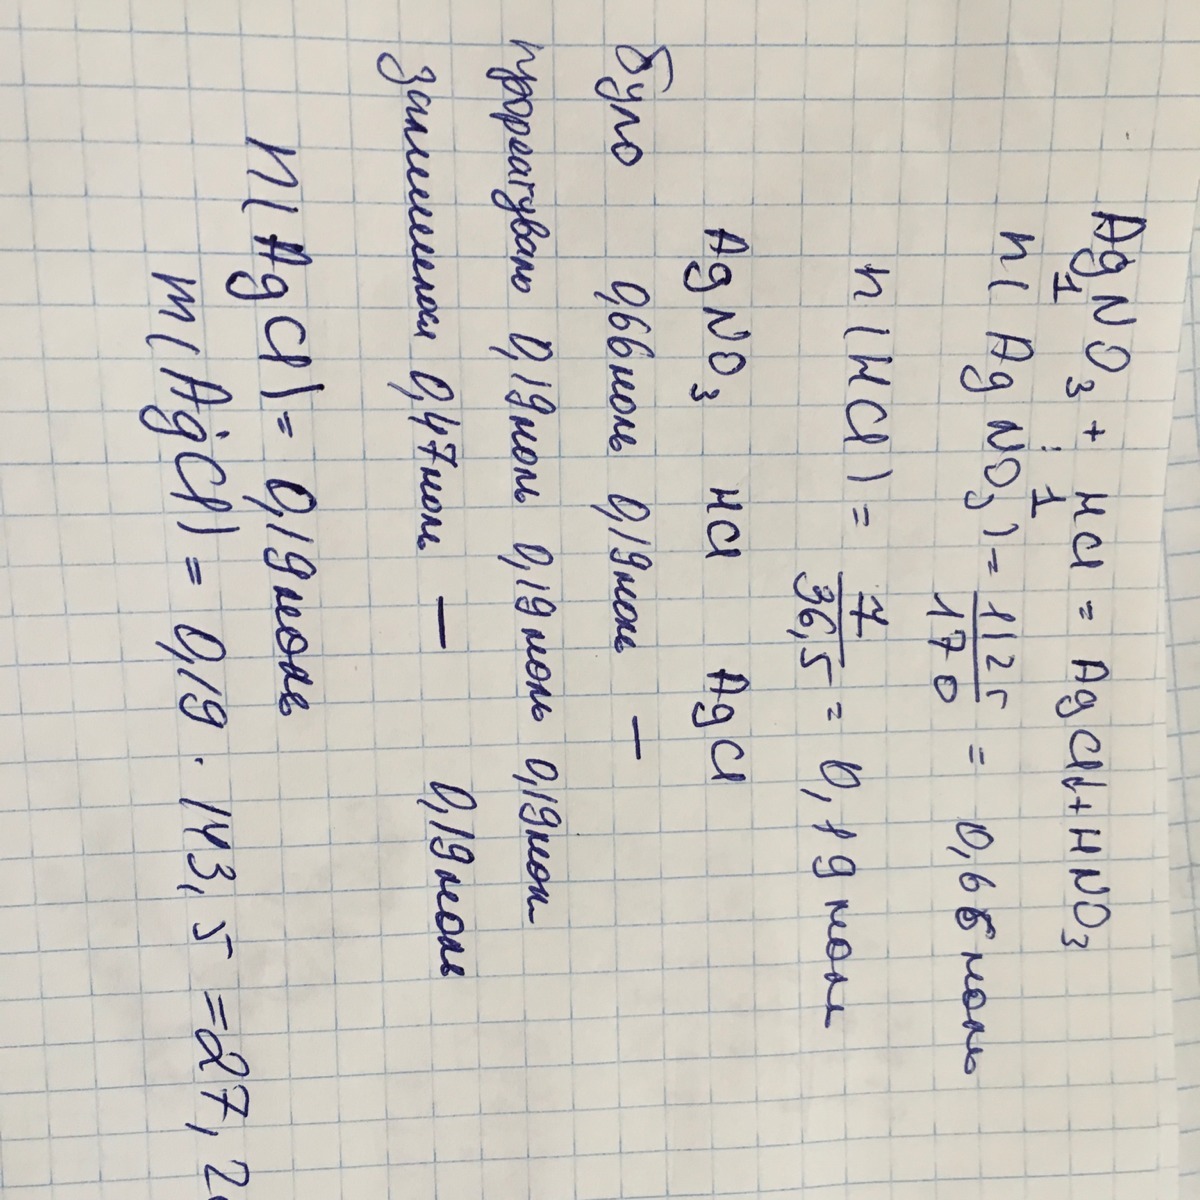 AgNO₃ + HCl = AgCl↓ + HNO₃
1 : 1
n(AgNO₃) = 112,5/170 = 0,66 моль
n(HCl) = 7/36,5 = 0,19 моль
AgNO₃ HCl AgCl
було 0,66 моль 0,19 моль —
прореагувало 0,19 моль 0,19 моль 0,19 моль
залишилося 0,47 моль — 0,19 моль
n(AgCl) = 0,19 моль
m(AgCl) = 0,19 · 143,5 = 27,2